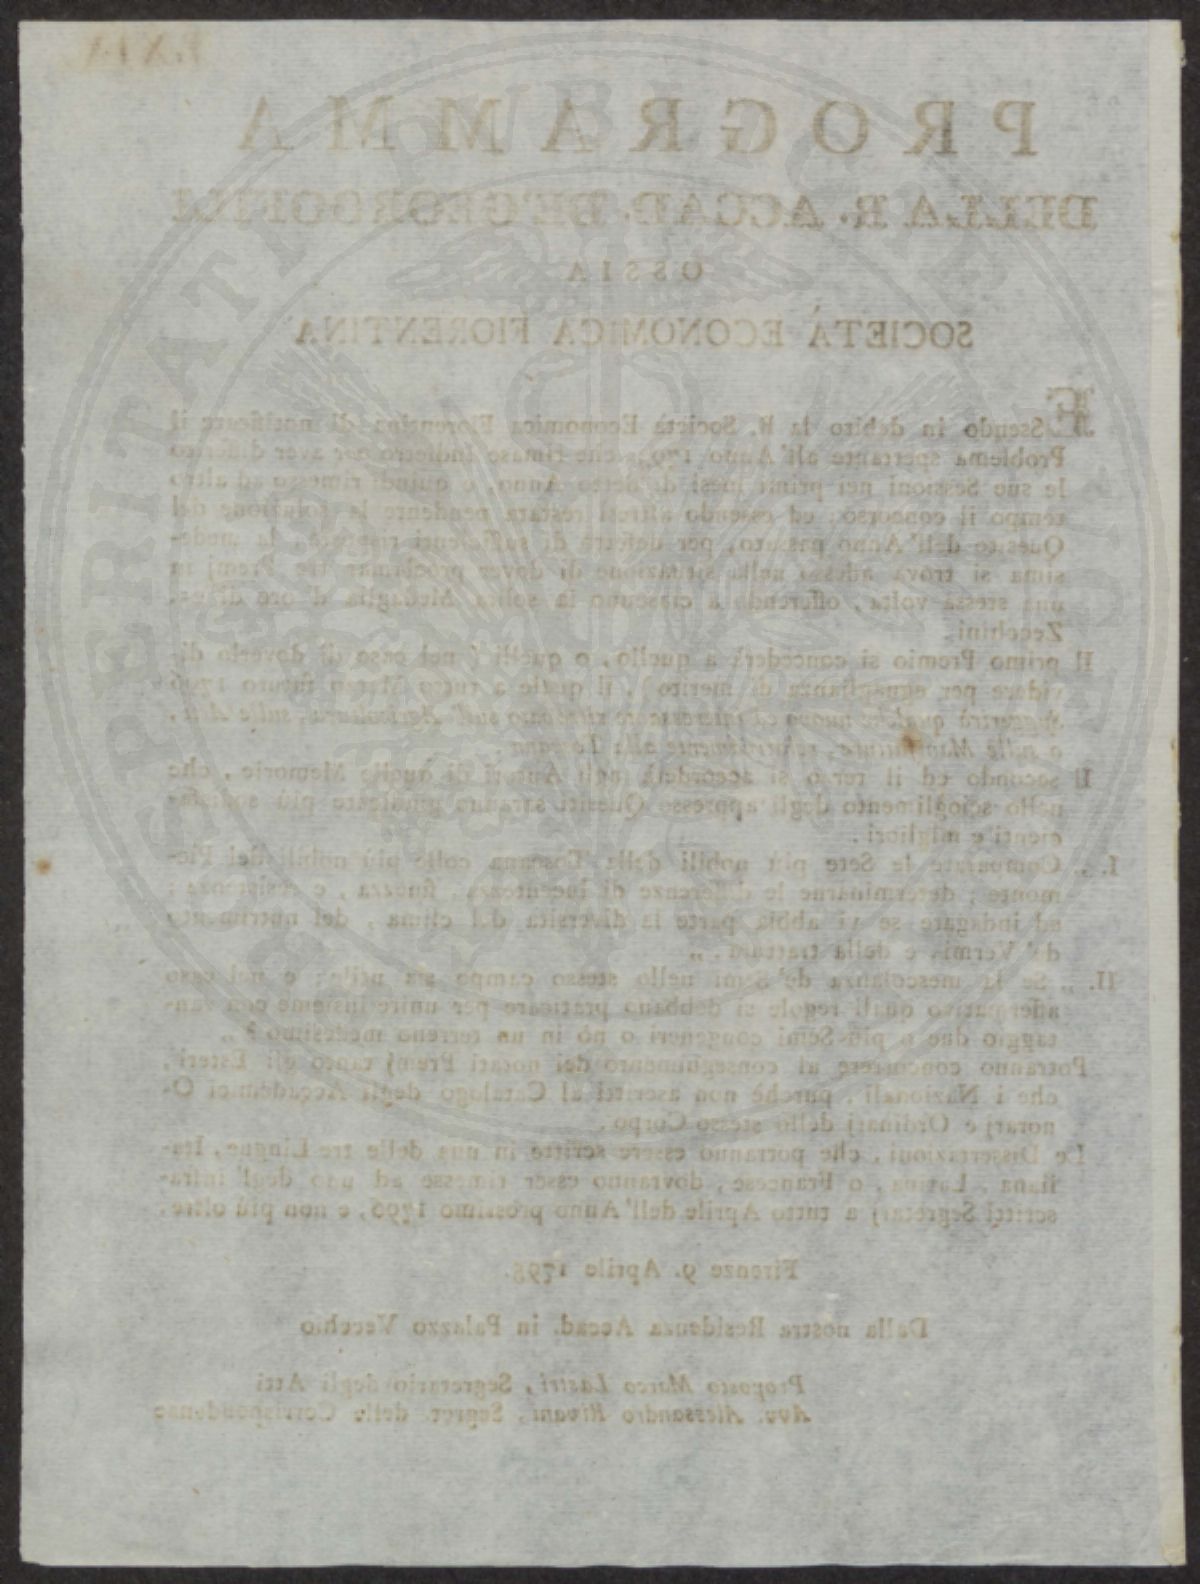 PROGRAMMA
DELLA R. ACCAD. DE' GEORGOFILI
OSSIA
SOCIETÀ ECONOMICA FIORENTINA
ESsendo in debito la R. Società Economica Fiorentina di notificare il
Problema spettante all'Anno 1793. che rimase indietro per aver differito
le sue Sessioni nei primi mesi di detto Anno, e quindi rimesso ad altro
tempo il concorso; ed essendo altresì restata pendente la soluzione del
Quesito dell'Anno passato, per difetto di sufficienti risposte, la mede-
sima si trova adesso nella situazione di dover proclamar tre Premj in
una stessa volta, offerendo a ciascuno la solita Medaglia d'oro di
Zecchini.
Il primo Premio si concederà a quello, o quelli (nel caso di doverlo di-
videre per eguaglianza di merito), il quale a tutto Marzo futuro 1796
suggerirà qualche nuovo ed interessante sull'Agricoltura, sulle Arti,
o sulle Manifatture, relativamente alla Toscana.
Il secondo ed il terzo si accorderà agli Autori di quelle Memorie, che
nello scioglimento degli appresso Quesiti saranno giudicate più soddisfa-
cienti e migliori.
I. „ Comparate le Sete più nobili della Toscana colle più nobili del Pie-
monte; determinarne le differenze di lucentezza, finezza, e resistenza;
ed indagare se vi abbia parte la diversità del clima, del nutrimento
de' Vermi, e della trattura. „
II. „ Se la mescolanza de' Semi nello stesso campo sia utile; e nel caso
affermativo quali regole si debbano praticare per unire insieme con van-
taggio due o più Semi congeneri o nò in un terreno medesimo? „
Potranno concorrere al conseguimento dei notati Premj tanto gli Esteri,
che i Nazionali, purchè non ascritti al Catalogo degli Accademici O-
norarj e Ordinarj dello stesso Corpo.
Le Dissertazioni, che potranno essere scritte in una delle tre Lingue, Ita-
liana, Latina, o Francese, dovranno esser rimesse ad uno degl'infra-
scritti Segretarj a tutto Aprile dell'Anno prossimo 1796, e non più oltre.
Firenze 9. Aprile 1795.
Dalla nostra Residenza Accad. in Palazzo Vecchio
Proposto Marco Lastri, Segretario degli Atti
Avv. Alessandro Rivani, Segret. delle Corrispondenze
PROSPERITATI PUBLICAE